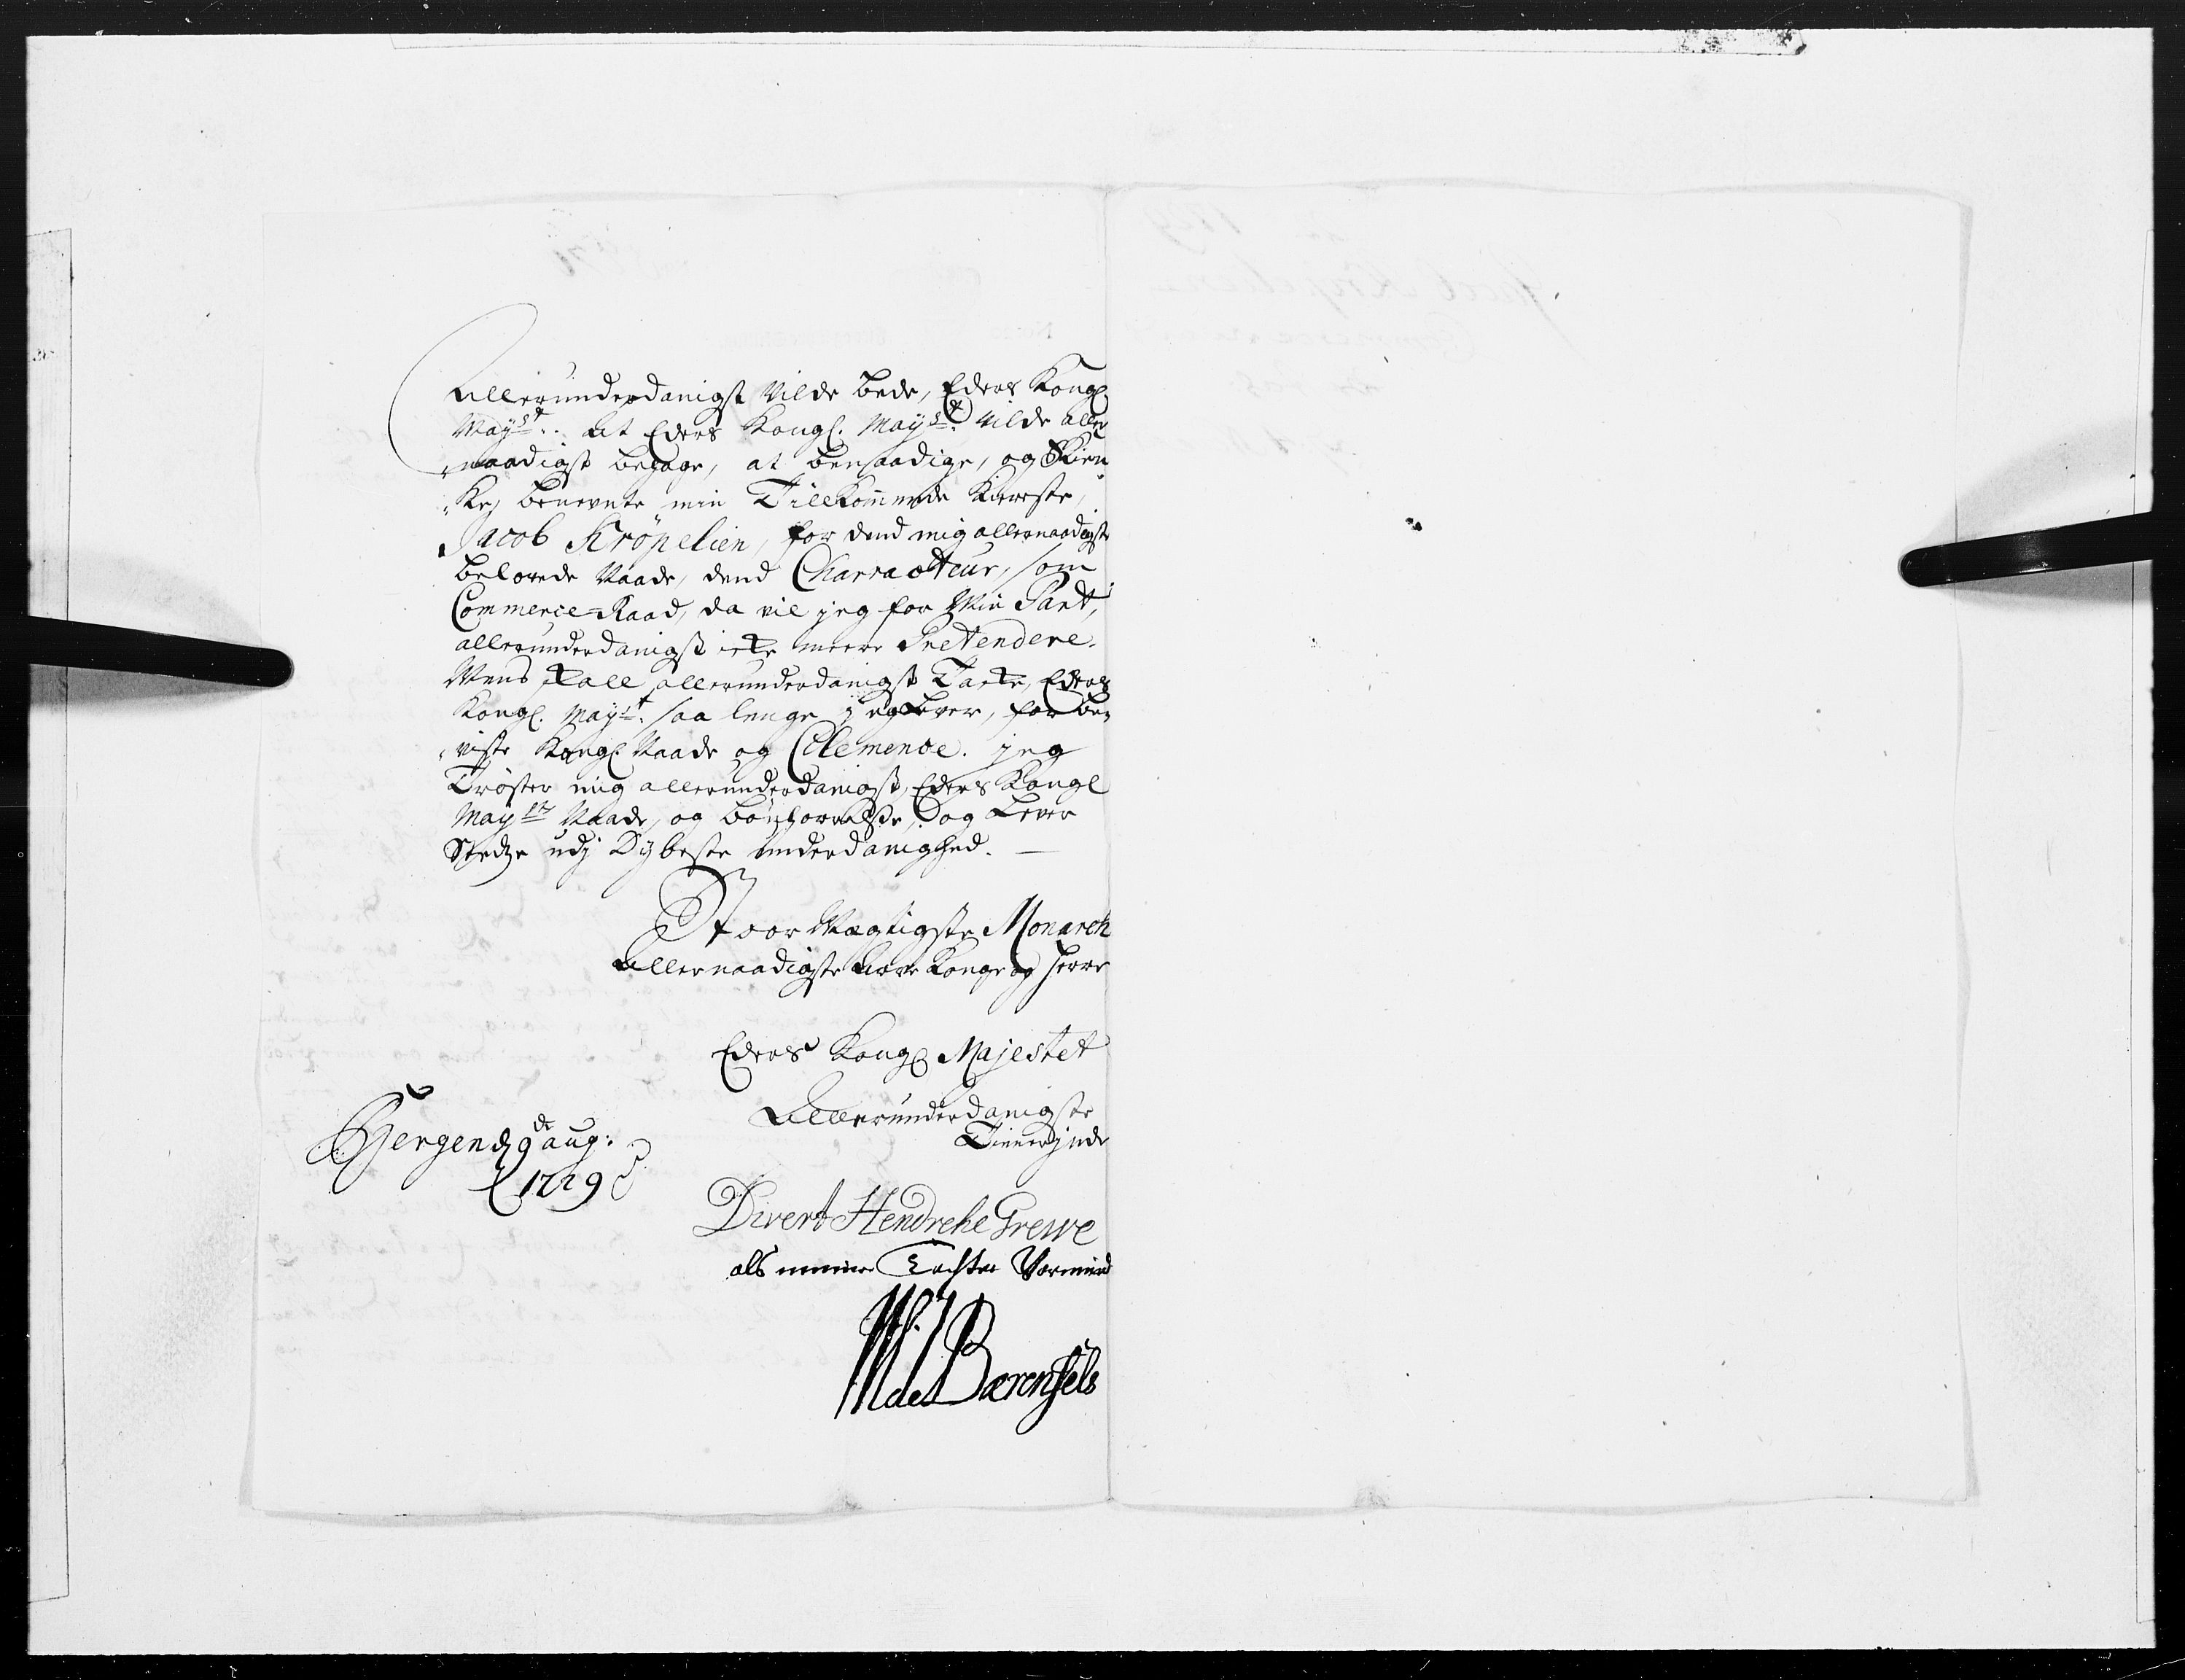 Allerunderdanigst Vilde bede, Eders Kongl.
Mayst. At Eders Kongl. Mayst. vilde aller
naadigst behage, at benaadige, og Skien
ke, benevnte min Tillkommende Kiereste,
Jacob Kröpelien, for dend mig allernaadigste
belovede Naade, dend Charracteur, som
Commerce-Raad, da vil jeg for Min Part,
allerunderdanigst icke meere Pretendere.
Mens skall allerunderdanigst Tacke, Eders
Kongl. Mayst. saa lenge jeg Lever, for be
viste Kongl. Naade og Clemence. jeg
Tröster mig allerunderdanigst, Eders Kongl
Mayts Naade, og bönhörrelsse, og Lever
Stedze udj Dybeste underdanighed.
Stoor Mægtigste Monarch
Allernaadigste Arve Konge og Herre
Eders Kongl Majestet
Allerunderdanigste
Tienerinde
Bergen d 9de aug:
1729
Divert Hendrche Grewe
als meiner Tochter Vormund
de Bærenfels